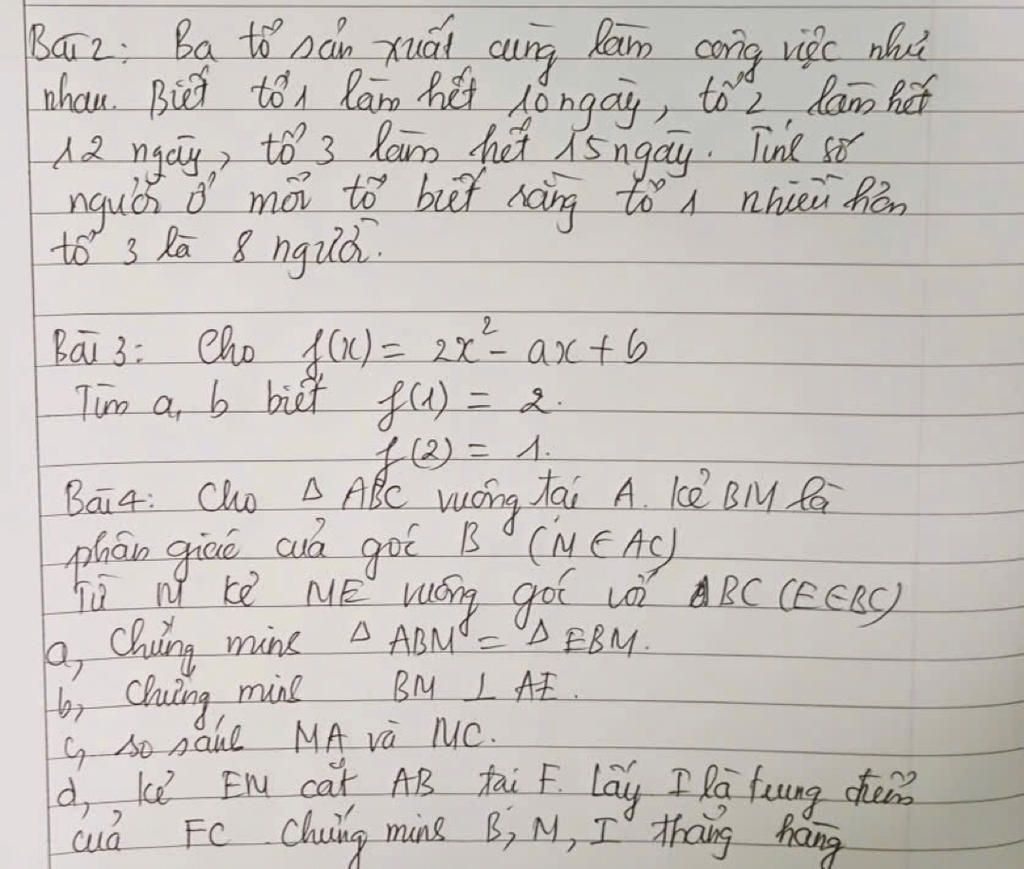 Bài 2: Ba tổ sản xuất cùng làm công việc như
nhau. Biết tổ 1 làm hết 10 ngày, tổ 2 làm hết
12 ngày, tổ 3 làm hết 15 ngày. Tính số
người ở mỗi tổ biết rằng tổ 1 nhiều hơn
tổ 3 là 8 người.
Bài 3: Cho f(x) = 2x² - ax + b
Tìm a, b biết f(1) = 2.
f(2) = 1.
Bài 4: Cho Δ ABC vuông tại A. kẻ BM là
phân giác của góc B (M ∈ AC)
Từ M kẻ ME vuông góc với BC (E ∈ BC)
a, Chứng minh Δ ABM = Δ EBM.
b, Chứng minh BM ⊥ AE.
c, so sánh MA và MC.
d, kẻ EM cắt AB tại F. Lấy I là trung điểm
của FC. Chứng minh B, M, I thẳng hàng